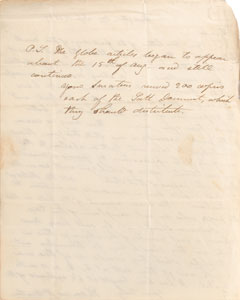 P.S. The Globe articles began to appear
about the 15th of Aug and still
continue.
your Senators 200 copies
each of the Documents, which
they should distribute.